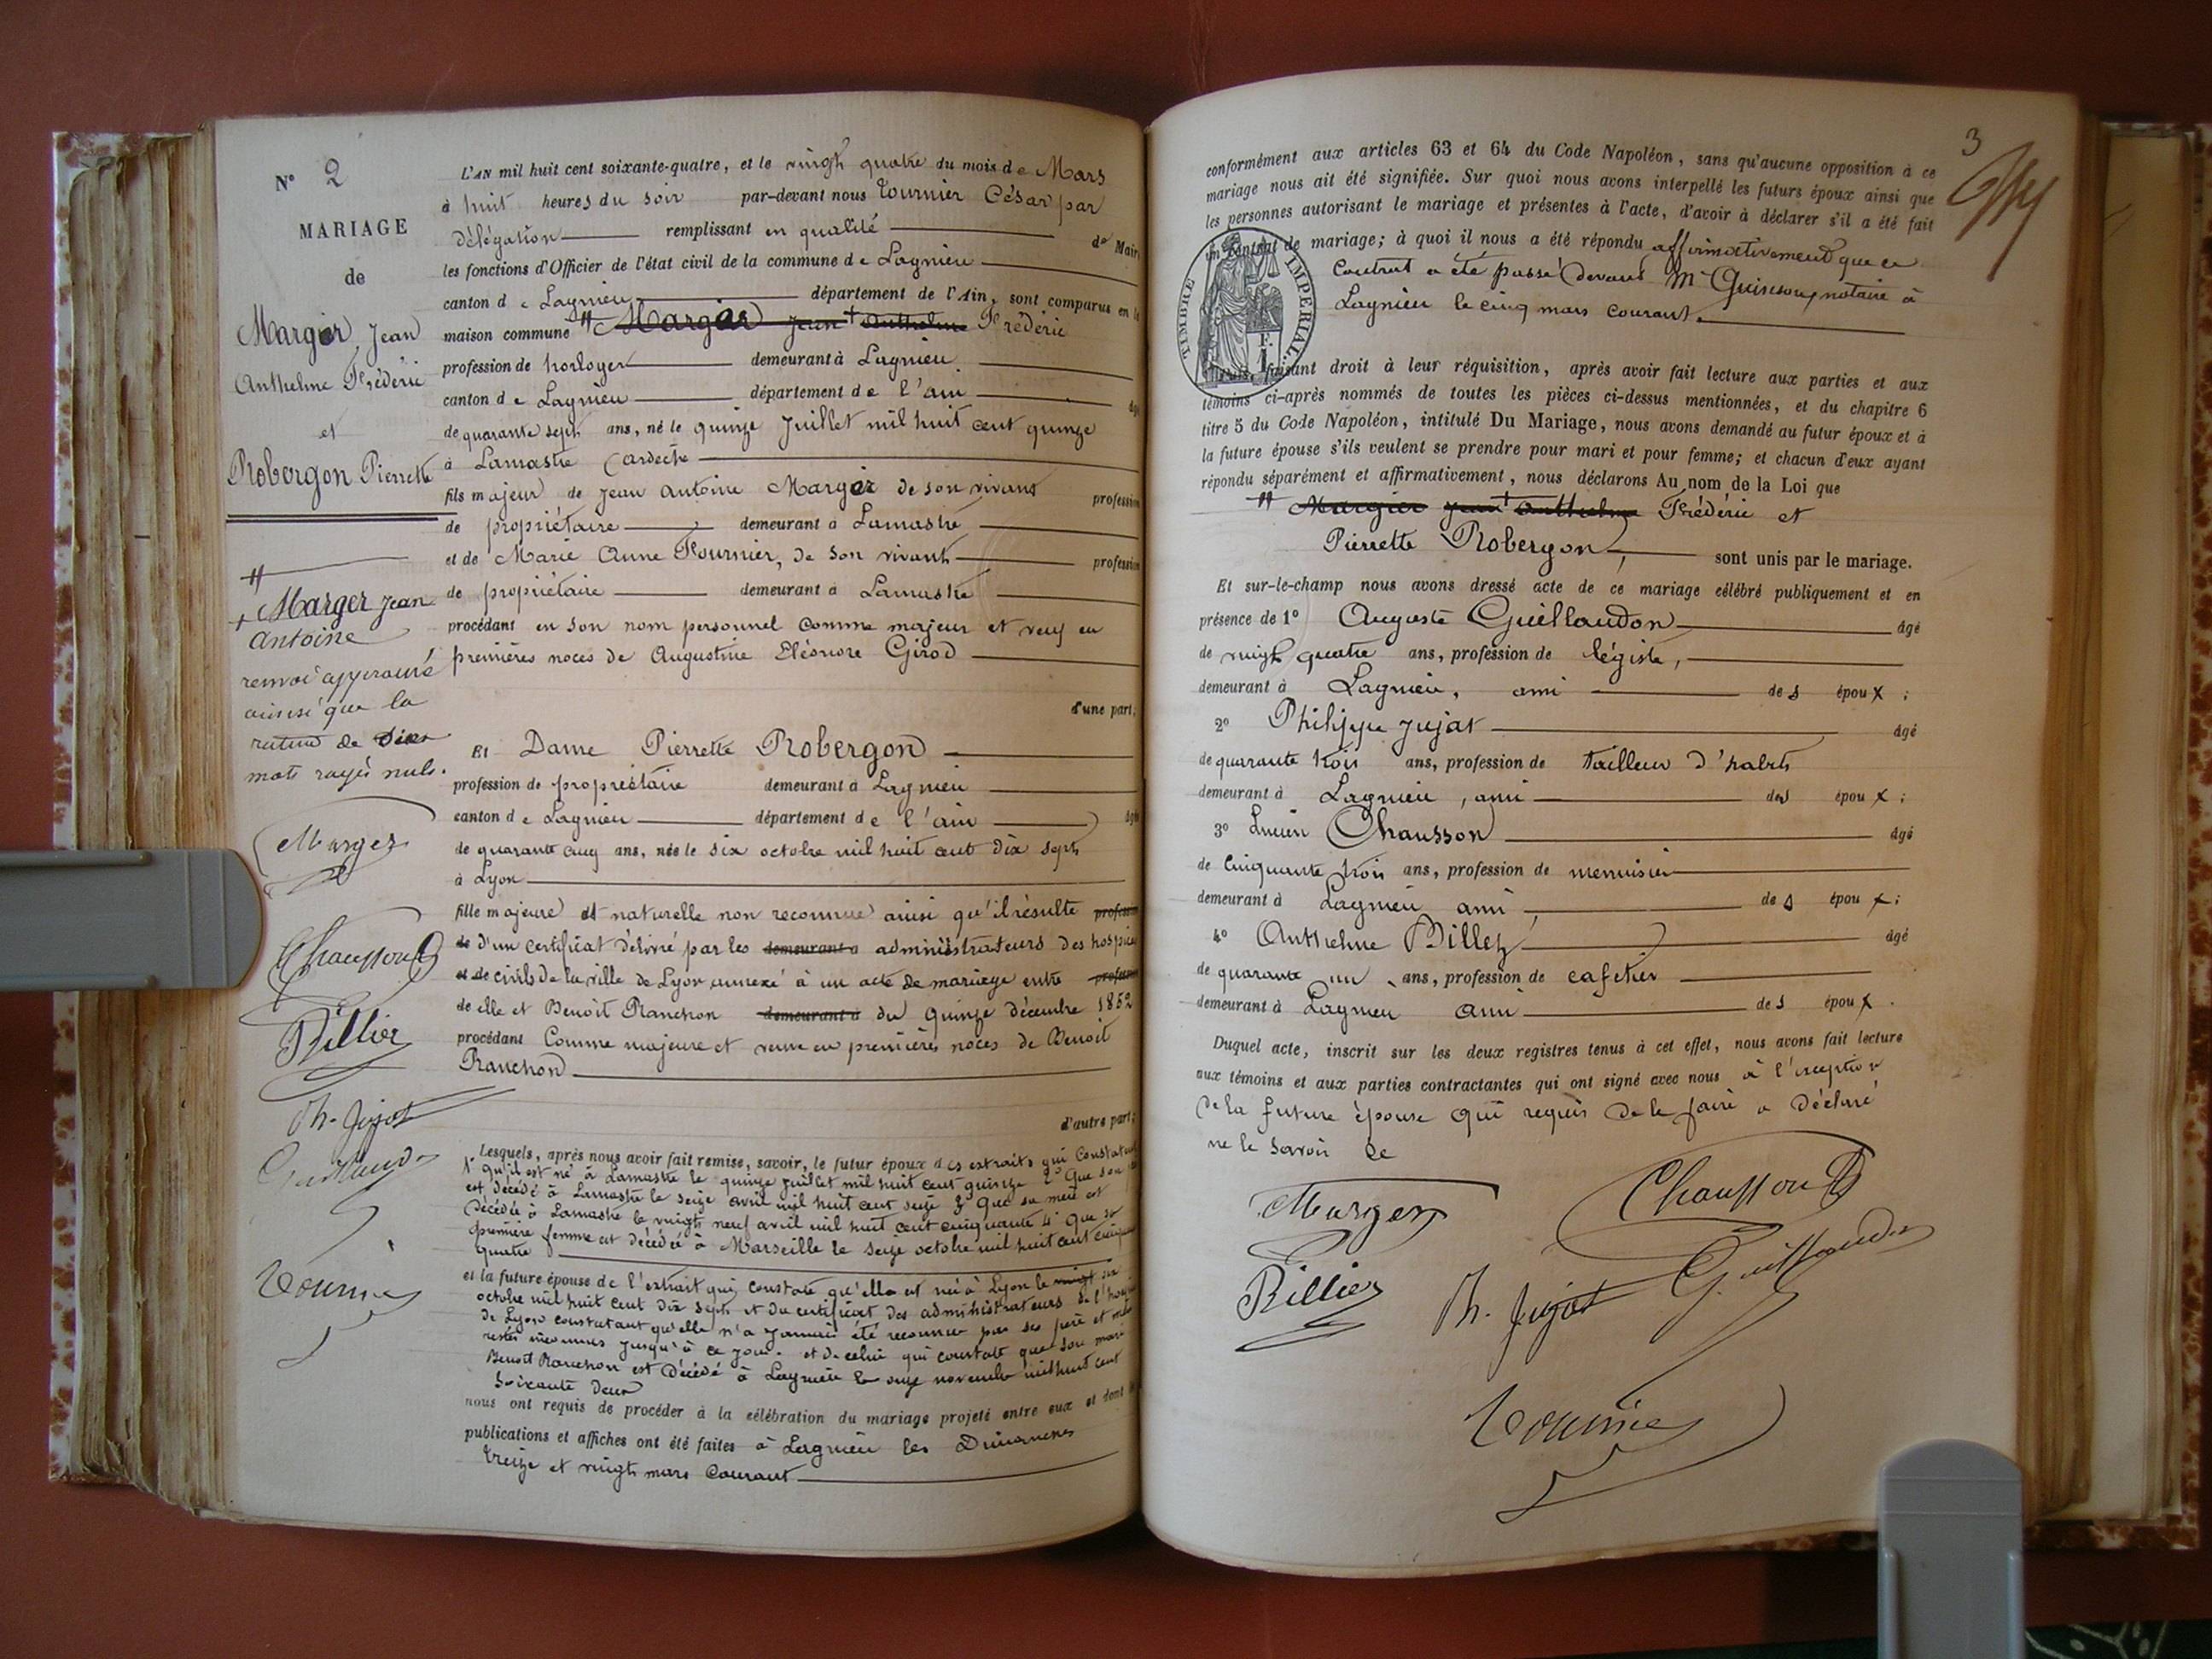 N° 2
MARIAGE
de
Marger, Jean
Anthelme Frédéric
et
Robergon Pierrette
Marger Jean
Antoine
renvoi approuvé
ainsi que la
rature de
mots rayés nuls.
Marger
Chausson
Billier
Ph. Jujat
Guillaudon
Tournier
L'AN mil huit cent soixante-quatre, et le vingt quatre du mois de Mars
à huit heures du soir par-devant nous Tournier César par
délégation remplissant en qualité de Maire
les fonctions d'Officier de l'état civil de la commune de Lagnieu
canton de Lagnieu département de l'Ain, sont comparus en la
maison commune Marger Jean Anthelme Frédéric
profession de horloger demeurant à Lagnieu
canton de Lagnieu département de l'ain âgé
de quarante sept ans, né le quinze Juillet mil huit cent quinze
à Lamastre (ardèche
fils majeur de Jean Antoine Marger de son vivant profession
de propriétaire demeurant à Lamastre
et de Marie Anne Fournier, de son vivant profession
de propriétaire demeurant à Lamastre
procédant en son nom personnel comme majeur et veuf en
premières noces de Augustine Eléonore Girod
d'une part;
Et Dame Pierrette Robergon
profession de propriétaire demeurant à Lagnieu
canton de Lagnieu département de l'ain âgé
de quarante cinq ans, née le six octobre mil huit cent dix sept
à Lyon
fille majeure et naturelle non reconnue ainsi qu'il résulte profession
de d'un certificat délivré par les demeurant à administrateurs des hospices
et de civils de la ville de Lyon annexé à un acte de mariage entre profession
de elle et Benoit Ranchon demeurant à du quinze décembre 1852
procédant Comme majeure et veuve en premières noces de Benoit
Ranchon
d'autre part;
Lesquels, après nous avoir fait remise, savoir, le futur époux des extraits qui constatent
1° qu'il est né à Lamastre le quinze juillet mil huit cent quinze 2° Que son
est décédé à Lamastre le seize avril mil huit cent seize 3° Que sa mère est
décédée à Lamastre le vingt neuf avril mil huit cent cinquante 4° Que sa
première femme est décédée à Marseille le seize octobre mil huit cent cinquante
quatre
et la future épouse de l'extrait qui constate qu'elle est née à Lyon le vingt six
octobre mil huit cent dix sept et du certificat des administrateurs de l'hospice
de Lyon constatant qu'elle n'a jamais été reconnue par ses père et mère
restés inconnus jusqu'à ce jour. et de celui qui constate que son mari
Benoit Ranchon est décédé à Lagnieu le onze novembre mil huit cent
soixante deux
nous ont requis de procéder à la célébration du mariage projeté entre eux et dont les
publications et affiches ont été faites à Lagnieu les Dimanches
treize et vingt mars courant
3
conformément aux articles 63 et 64 du Code Napoléon, sans qu'aucune opposition à ce
mariage nous ait été signifiée. Sur quoi nous avons interpellé les futurs époux ainsi que
les personnes autorisant le mariage et présentes à l'acte, d'avoir à déclarer s'il a été fait
un contrat de mariage; à quoi il nous a été répondu affirmativement que ce
contrat a été passé devant Me Quinson, notaire à
Lagnieu le cinq mars courant.
TIMBRE IMPERIAL
faisant droit à leur réquisition, après avoir fait lecture aux parties et aux
témoins ci-après nommés de toutes les pièces ci-dessus mentionnées, et du chapitre 6
titre 5 du Code Napoléon, intitulé Du Mariage, nous avons demandé au futur époux et à
la future épouse s'ils veulent se prendre pour mari et pour femme; et chacun d'eux ayant
répondu séparément et affirmativement, nous déclarons Au nom de la Loi que
Margier Jean Anthelme Frédéric et
Pierrette Robergon, sont unis par le mariage.
Et sur-le-champ nous avons dressé acte de ce mariage célébré publiquement et en
présence de 1° Auguste Guillaudon âgé
de vingt quatre ans, profession de légiste,
demeurant à Lagnieu, ami des époux ;
2° Philippe Jujat âgé
de quarante trois ans, profession de tailleur d'habits
demeurant à Lagnieu, ami des époux ;
3° Lucien Chausson âgé
de cinquante trois ans, profession de menuisier
demeurant à Lagnieu ami des époux ;
4° Anthelme Billiez âgé
de quarante un ans, profession de cafetier
demeurant à Lagnieu ami des époux .
Duquel acte, inscrit sur les deux registres tenus à cet effet, nous avons fait lecture
aux témoins et aux parties contractantes qui ont signé avec nous à l'exception
de la future épouse qui requis de le faire a déclaré
ne le savoir
Marger
Chausson
Billier
Ph. Jujat
Guillaudon
Tournier